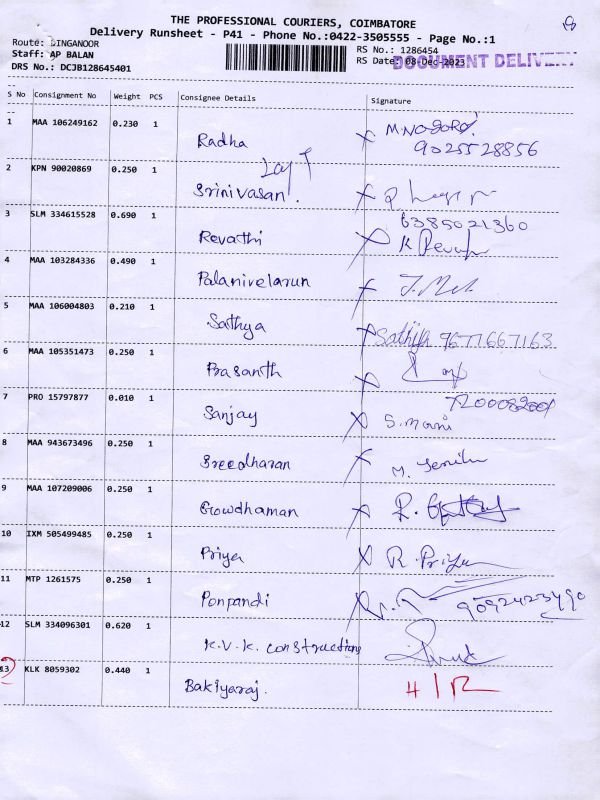 THE PROFESSIONAL COURIERS, COIMBATORE
Delivery Runsheet - P41 - Phone No.:0422-3505555 - Page No.:1
Route: DINGANOOR
RS No.: 1286454
Staff: AP BALAN
RS Date: 08-Dec-2023
DOCUMENT DELIVERY
DRS No.: DCJB128645401
S No Consignment No Weight PCS Consignee Details Signature
1 MAA 106249162 0.230 1 Radha
9025528856
2 KPN 90020869 0.250 1 Srinivasan.
3 SLM 334615528 0.690 1 Revathi 6385021360
K Revath
4 MAA 103284336 0.490 1 Palanivelarun
5 MAA 106004803 0.210 1 Sathya Sathya 9677667163
6 MAA 105351473 0.250 1 Prasanth
7 PRO 15797877 0.010 1 Sanjay S. mani
8 MAA 943673496 0.250 1 Sreedharan
9 MAA 107209006 0.250 1 Gowdhaman
10 IXM 505499485 0.250 1 Priya R. Priya
11 MTP 1261575 0.250 1 Ponpandi 9092423490
12 SLM 334096301 0.620 1 K.V.K. construction
13 KLK 8059302 0.440 1 Bakiyaraj. H/R